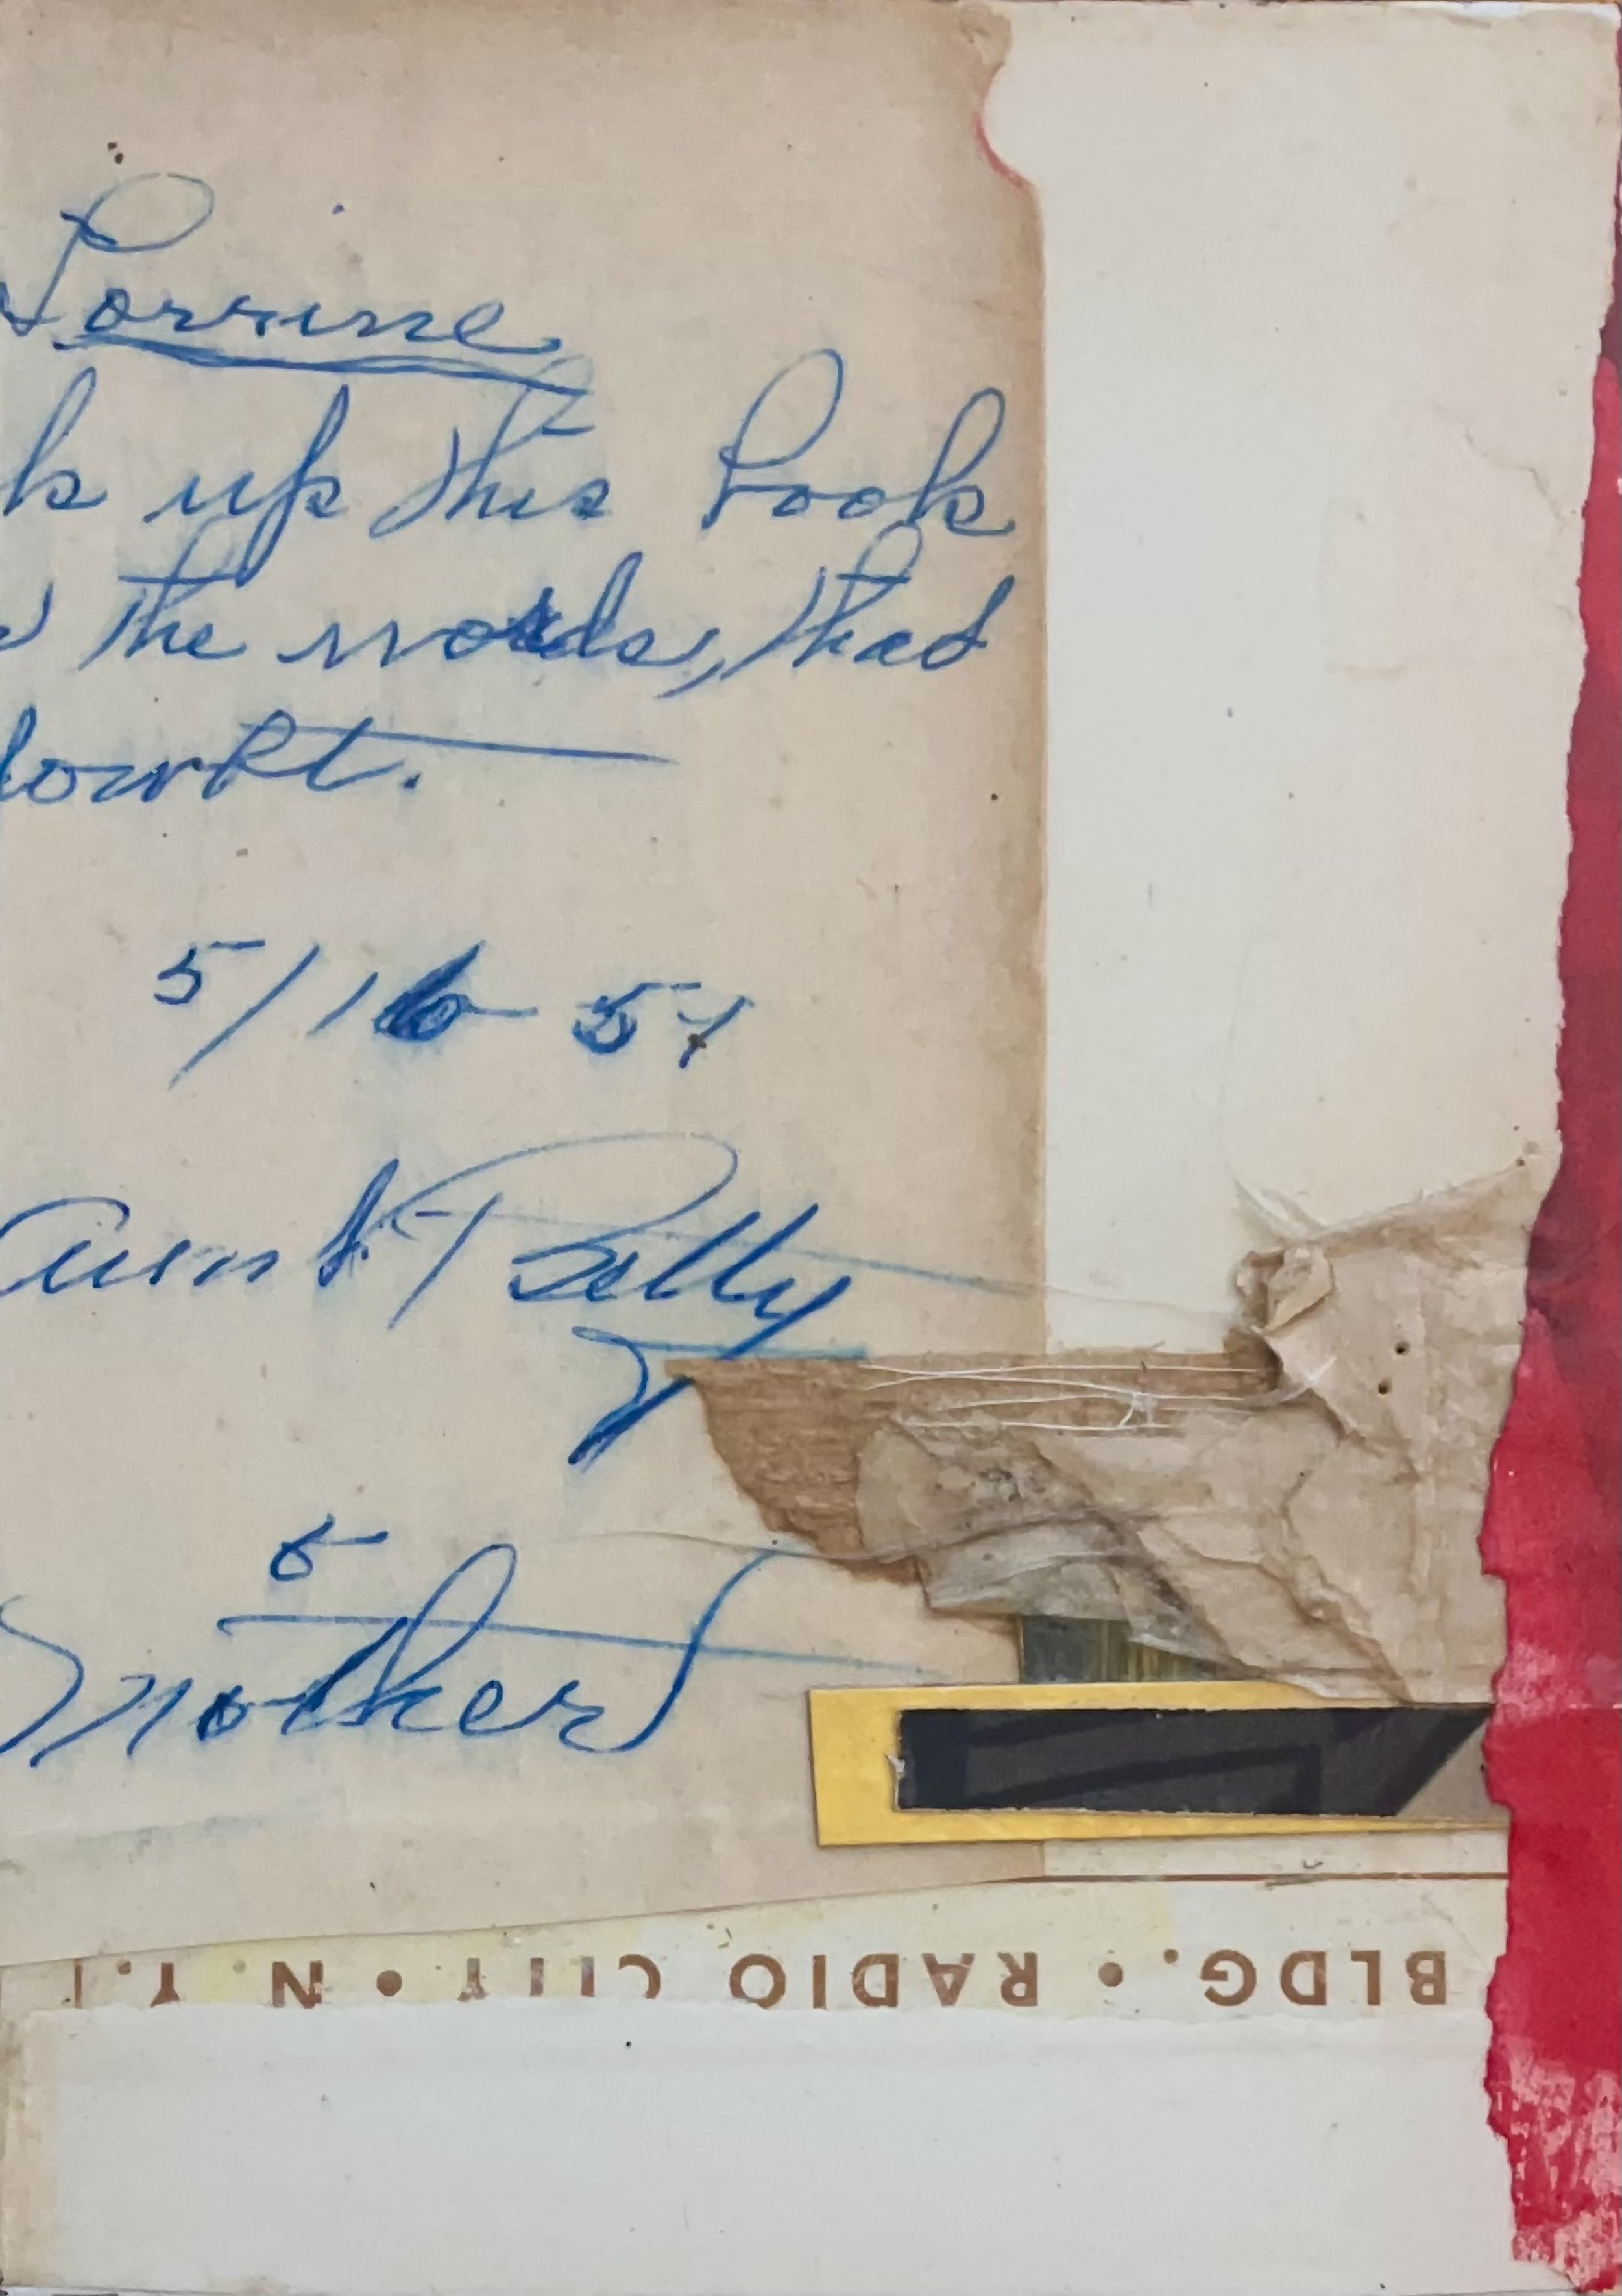 Lorrine
k up this book
the words, that
doubt.
5/16 57
Aunt Billy
&
Mother
BLDG. • RADIO CITY • N.Y.